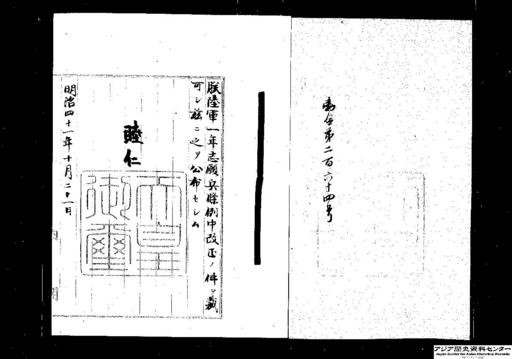 勅令第二百六十四号
朕陸軍一年志願兵條例中改正ノ件ヲ裁
可シ茲ニ之ヲ公布セシム
睦仁
天皇御璽
明治四十一年十月二十一日
アジア歴史資料センター
Japan Center for Asian Historical Records